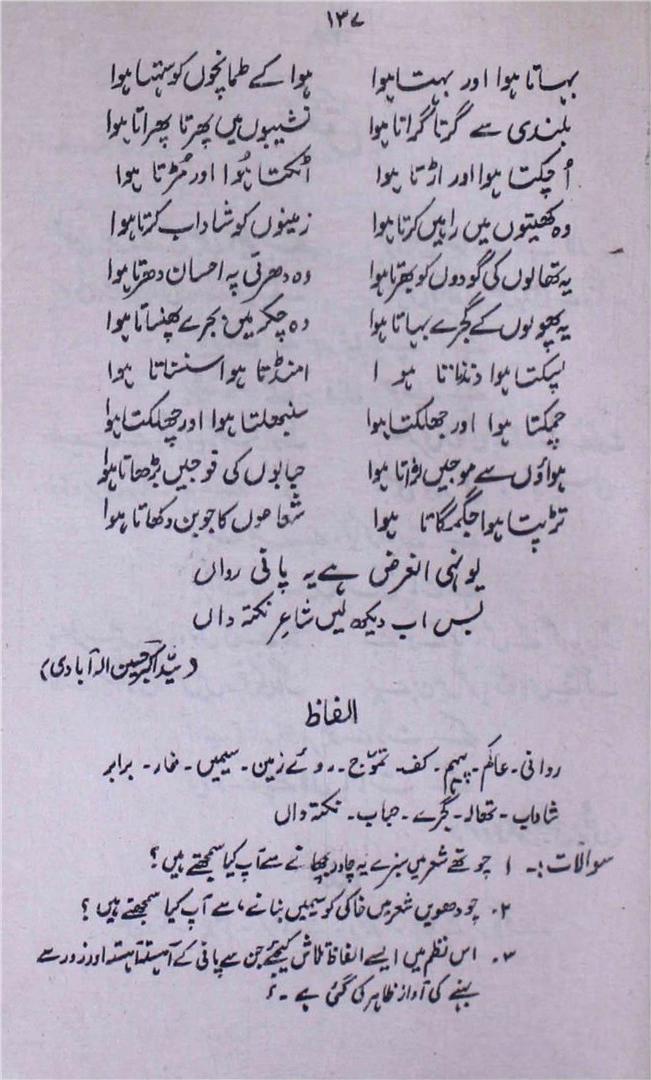 ۱۳۷
بہاتا ہوا اور بہتا ہوا ہوا کے طمانچوں کو سہتا ہوا
بلندی سے گرتا گراتا ہوا نشیبوں میں پھرتا پھراتا ہوا
اُچکتا ہوا اور اڑتا ہوا اٹکتا ہُوا اور مُڑتا ہوا
وہ کھیتوں میں راہیں کرتا ہوا زمینوں کو شاداب کرتا ہوا
یہ تھالوں کی گودوں کو بھرتا ہوا وہ دھرتی پہ احسان دھرتا ہوا
یہ پھولوں کے گجرے بہاتا ہوا وہ چکر میں بجرے پھنساتا ہوا
لپکتا ہوا دندناتا ہوا امنڈتا ہوا سنسناتا ہوا
چمکتا ہوا اور جھلکتا ہوا سنبھلتا ہوا اور چھلکتا ہوا
ہواؤں سے موجیں لڑاتا ہوا حبابوں کی فوجیں بڑھاتا ہوا
تڑپتا ہوا جگمگاتا ہوا شعاعوں کا جوبن دکھاتا ہوا
یونہی الغرض ہے یہ پانی رواں
بس اب دیکھ لیں شاعرِ نکتہ داں
(سیّد اکبر حسین الہ آبادی)
الفاظ
روانی۔ عالَم۔ پیہم۔ کف۔ تموّج۔ روئے زمین۔ سیمیں۔ غار۔ برابر
شاداب۔ تھالہ۔ گجرے۔ حباب۔ نکتہ داں
سوالات:۔ ۱ چوتھے شعر میں سبزے پہ چادر بچھانے سے آپ کیا سمجھتے ہیں؟
۲۔ چودھویں شعر میں خاکی کو سیمیں بنانے، سے آپ کیا سمجھتے ہیں؟
۳۔ اس نظم میں ایسے الفاظ تلاش کیجئے جن سے پانی کے آہستہ آہستہ اور زور سے
بہنے کی آواز ظاہر کی گئی ہے۔؟